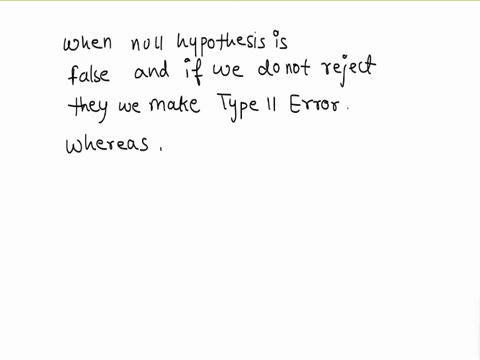 when null hypothesis is
false and if we do not reject
they we make Type II Error.
whereas,